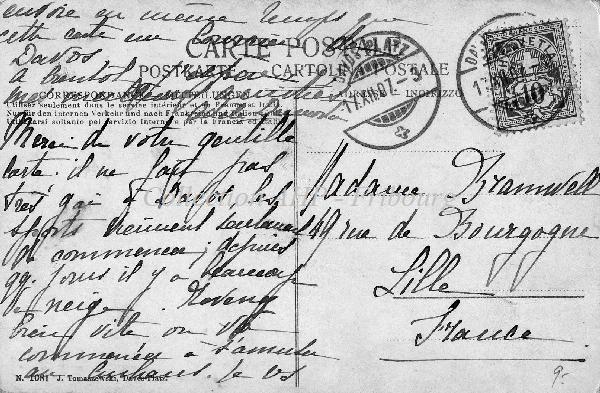 envoie en même temps que
cette carte un
Davos
A bientôt
CARTE POSTALE
POSTKARTE CARTOLINA POSTALE
CORRESPONDANCE MITTEILUNGEN
INDIRIZZO
Utilisez seulement dans le service intérieur et en France et Italie
Nur für den internen Verkehr und nach Frankreich und Italien
Utilizzarsi soltanto pel servizio interno e per la Francia ed Italia
Merci de votre gentille
carte: il ne fait pas
très gai à Davos les
sports viennent seulement
de commencer; depuis
qq. jours il y a beaucoup
de neige. Revenez
bien vite on va
commencer à s'amuser
au Je vs
Madame Bramwell
49 rue de Bourgogne
Lille
France
DAVOS PLATZ
HELVETIA
10
Collection AHP - Fribourg
N. 1081 J. Tomaszewski, Davos-Platz.
9.-